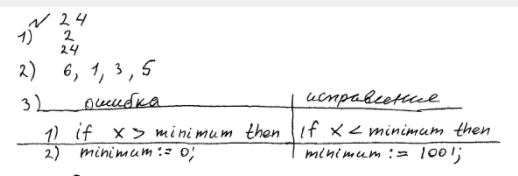 № 24
1) 2
24
2) 6, 1, 3, 5
3) ошибка исправление
1) if x > minimum then if x < minimum then
2) minimum := 0; minimum := 100!;